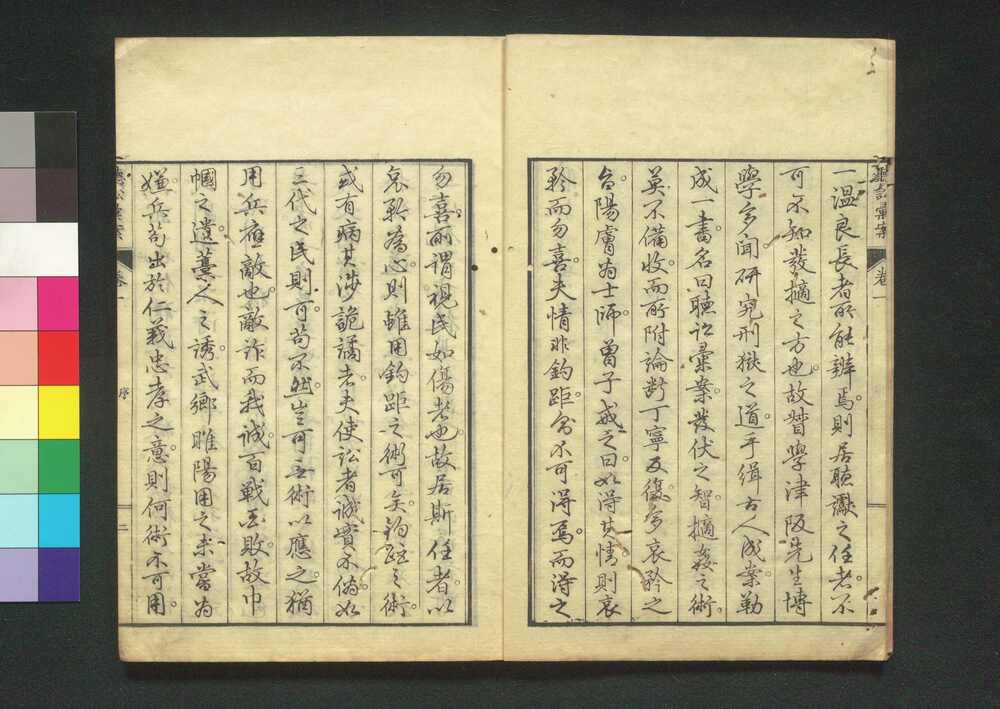 聽訟彙案
卷一
一溫良長者所能辨焉則居聽讞之任者不
可不知發擿之方也故督學津阪先生博
學多聞研究刑獄之道手緝古人成案勒
成一書名曰聽訟彙案發伏之智擿姦之術
莫不備收而所附論斷丁寧反復多哀矜之
旨陽膚為士師曾子戒之曰如得其情則哀
矜而勿喜夫情非鈎距多不可得焉而得之
勿喜所謂視民如傷者也故居斯任者以
哀矜為心則雖用鈎距之術可矣鈎距之術
或有病其涉詭譎者夫使訟者誠實不偽如
三代之民則可苟不然豈可無術以應之猶
用兵應敵也敵詐而我誠百戰百敗故巾
幗之遺藁人之誘武鄉睢陽用之未嘗為
嫌矣苟出於仁義忠孝之意則何術不可用
聽訟彙案
卷一
序
二